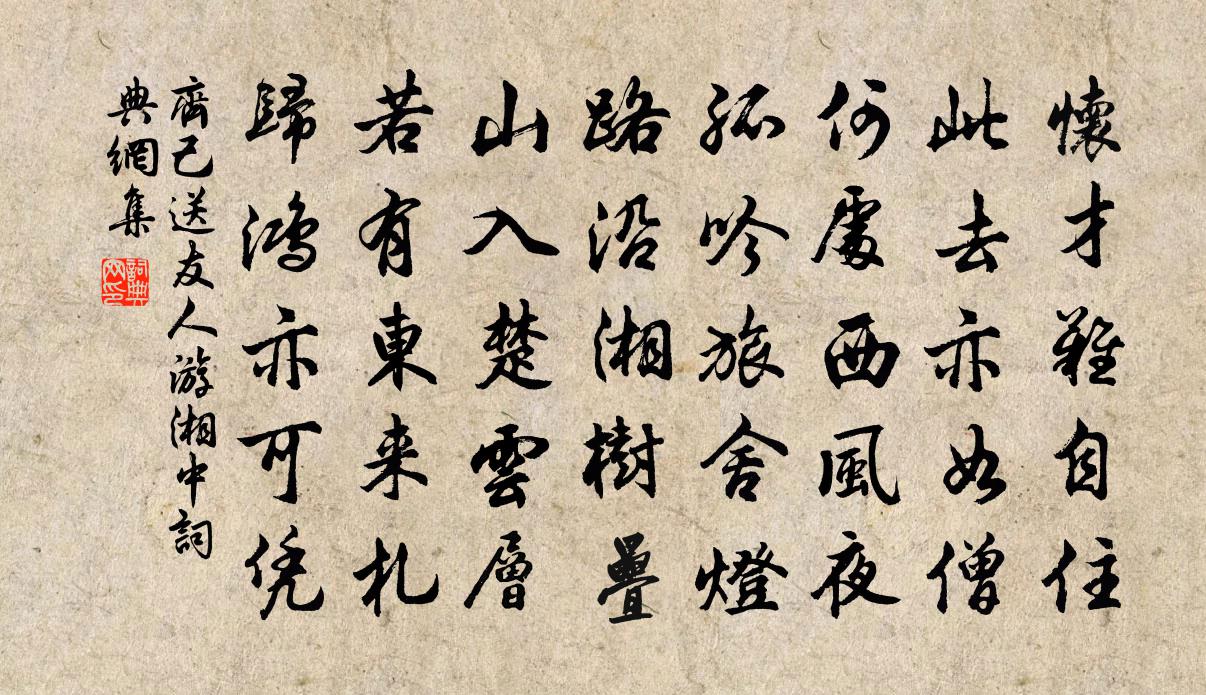 懷才難自住
此去亦如僧
何處西風夜
孤吟旅舍燈
路沿湘樹疊
山入楚雲層
若有東来札
歸鴻亦可凭
齊己送友人游湘中詞
典網集
詞典
网印